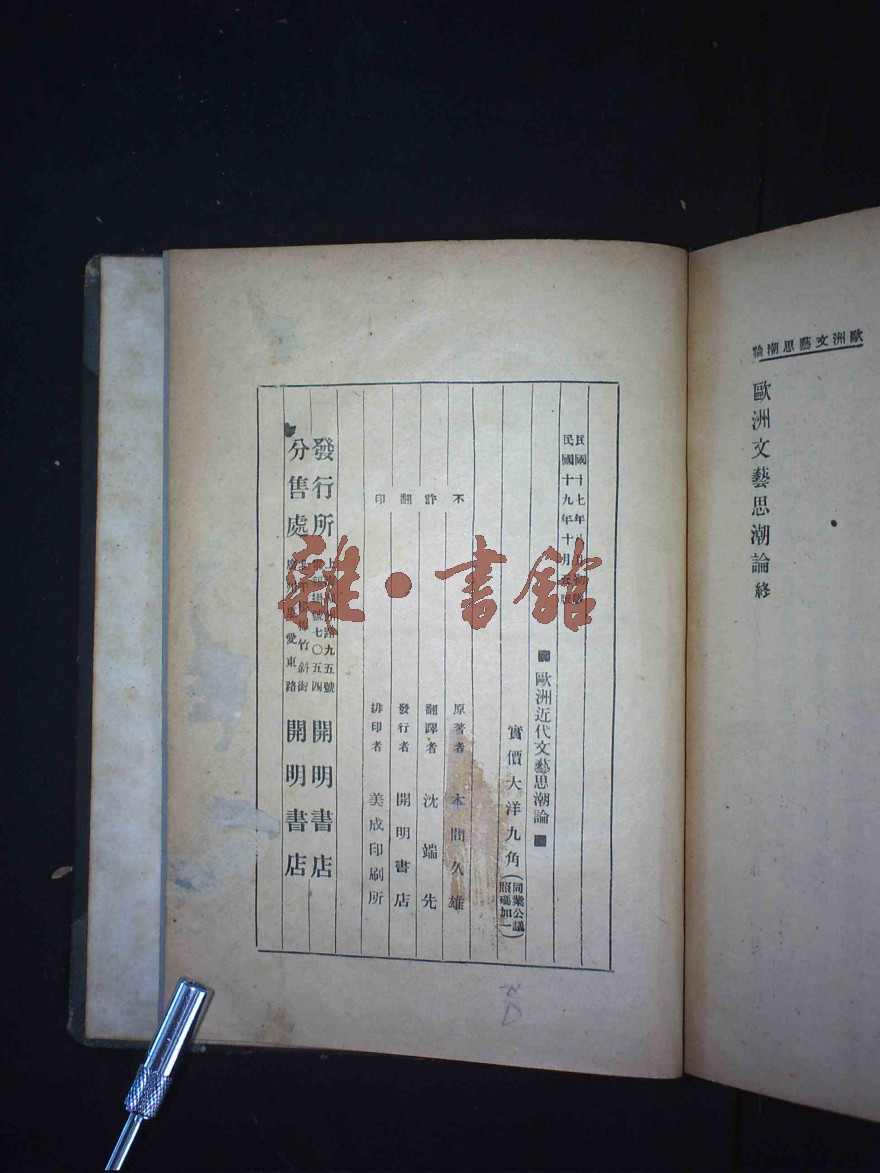 歐洲文藝思潮論
歐洲文藝思潮論終
民國十七年
民國十九年十月
■歐洲近代文藝思潮論■
實價大洋九角(同業公議照碼加一)
原著者 本間久雄
翻譯者 沈端先
發行者 開明書店
排印者 美成印刷所
不許翻印
發行所 上 路九五號 掛號七〇五四 開明書店
分售處 竹斜街 愛東路 開明書店
雜·書館